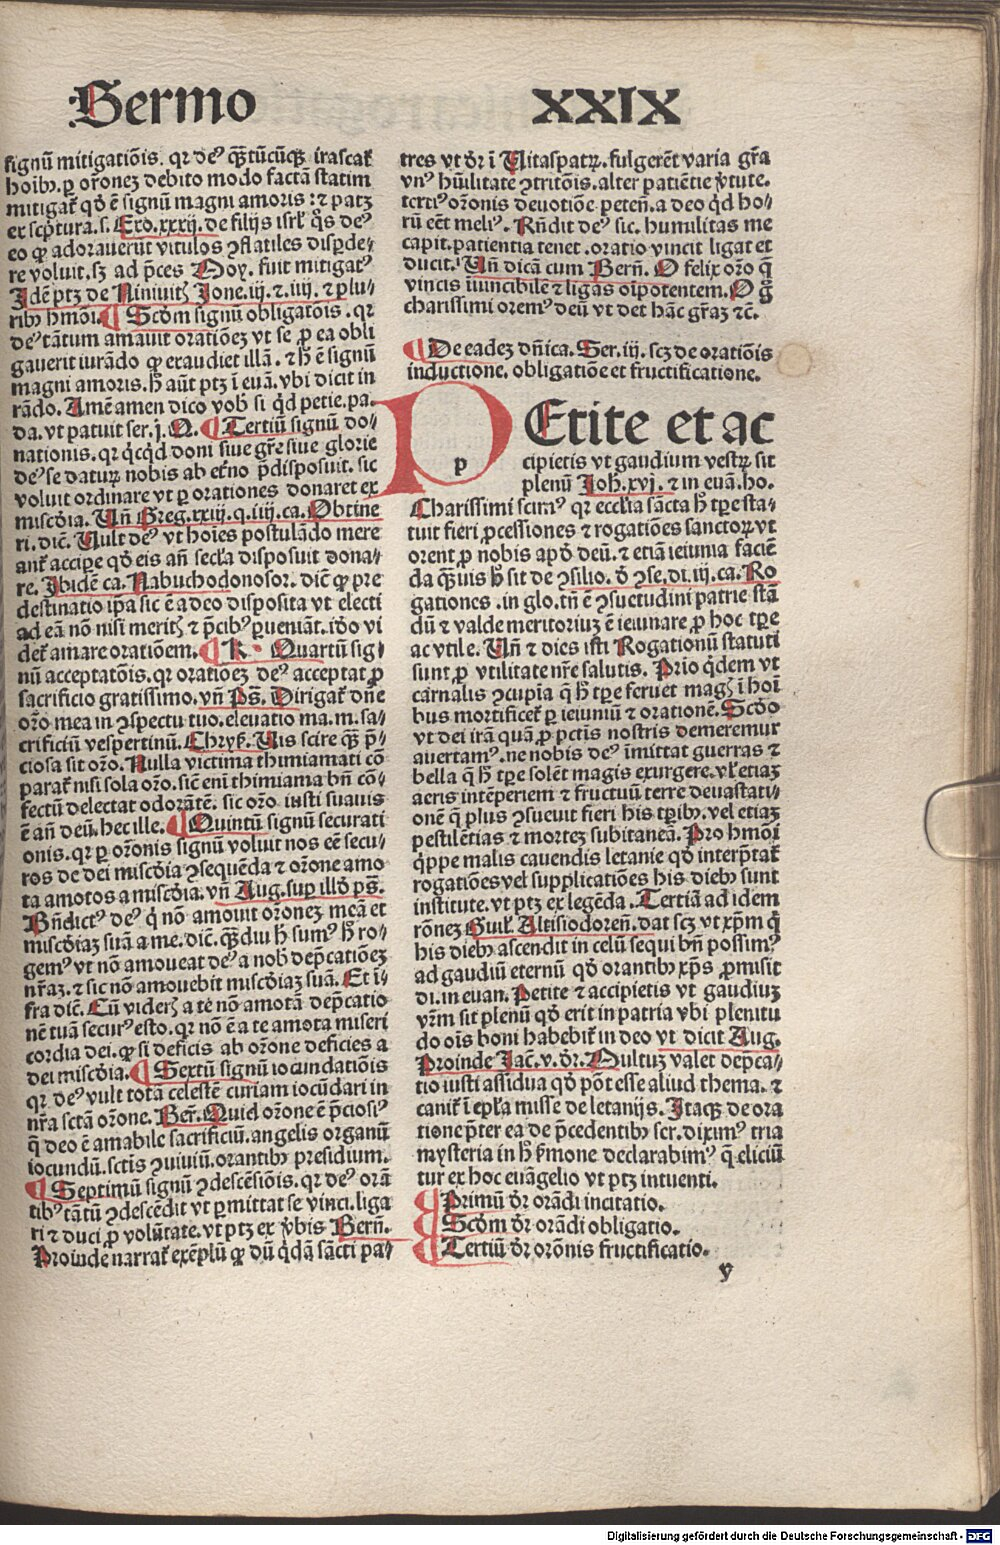 Sermo XXIX
signū mitigatiōis. qr deꝰ q̄ꝫtūcūqꝫ irascat᷑
hoibꝫ. ꝑ or̄onez debito modo factā statim
mitigat᷑ qđ ē signū magni amoris ⁊ ꝫ patꝫ
ex scptura. s. Exo. xxxij. de filijs isrl̄ q̊s deꝰ
eo ꝙ adorauerūt vitulos ꝯflatiles disꝑde/
re voluit. sꝫ ad p̄ces Moy. fuit mitigatꝰ
Idē ptꝫ de Niniuitꝭ Ione. iij. ⁊. iiij. ⁊ plu/
ribꝫ hmōi. ¶ Scđm signū obligatōis. qr
deꝰ tātum amauit orationez vt se ꝑ ea obli
gauerit iurādo ꝙ exaudiet illā. ⁊ h̄ ē signū
magni amoris. h̄ aūt ptꝫ ī euā. vbi dicit in
rādo. Amē amen dico vob̄ si q̇d petie. pa.
da. vt patuit ser. j. Q. ¶ Tertiū signū do/
nationis. qr q̇cq̇d doni siue gr̄e siue glorie
deꝰ se daturꝫ nobis ab et̄no p̄disposuit. sic
voluit ordinare vt ꝑ orationes donaret ex
miscđia. Un̄ Greg. xxiij. q. iiij. ca. Obtine
ri. dic̄. Uult deꝰ vt hoīes postulādo mere
ant᷑ accipe qđ eis an̄ secl̄a disposuit dona/
re. Ibidē ca. Nabuchodonosor. dic̄ ꝙ pre
destinatio ip̄a sic ē a deo disposita vt electi
ad eā nō nisi meritꝭ ⁊ p̄cibꝰ ꝑueniāt. iđo vi
det᷑ amare oratiōem. ¶ R. Quartū sig/
nū acceptatōis. qr oratioez deꝰ acceptat ꝓ
sacrificio gratissimo. vn̄ Ps̄. Dirigat᷑ dn̄e
or̄o mea in ꝯspectu tuo. eleuatio ma. m. sa/
crificiū vespertinū. Chryſ. Uis scire qꝫ p̄/
ciosa sit or̄o. Nulla victima thimiamati cō
parat᷑ nisi sola or̄o. sic eni thimiama bn̄ cō/
fectū delectat odorātē. sic or̄o iusti suauis
ē an̄ deū. hec ille. ¶ Quintū signū securati
onis. qr ꝑ or̄onis signū voluit nos eē secu/
ros de dei miscđia ꝯsequēda ⁊ or̄one amo
ta amotos a miscđia. vn̄ Aug. sup illđ ps̄.
Bn̄dictꝰ deꝰ q̇ nō amouit or̄onez meā et
miscđiaꝫ suā a me. dic̄. qꝫdiu h̄ sumꝰ h̄ ro/
gemꝰ vt nō amoueat deꝰ a nob̄ dep̄catioeꝫ
nr̄aꝫ. ⁊ sic nō amouebit miscđiaꝫ suā. Et ī/
fra dic̄. Cū viderꝭ a te nō amotā dep̄catio
nē tuā securꝰ esto. qr nō ē a te amota miseri
cordia dei. ꝙ si deficis ab or̄one deficies a
dei miscđia. ¶ Sextū signū iocundatiōis
qr deꝰ vult totā celestē curiam iocūdari in
nr̄a sctā or̄one. Ber̄. Quid or̄one ē p̄ciosiꝰ
q̄ deo ē amabile sacrificiū. angelis organū
iocundū. sctīs ꝯuiuiū. orantibꝫ presidium.
¶ Septimū signū ꝯdescēsiōis. qr deꝰ orā
tibꝰ tātū ꝯdescēdit vt ꝑmittat se vinci. liga
ri ⁊ duci ꝓ volūtate. vt ptꝫ ex v̇bis Bern̄.
Proinde narrat᷑ exēplū ꝙ dū q̇dā sācti pa/
tres vt đr ī Uitaspatꝝ. fulgerēt varia gr̄a
vnꝰ hūilitate ꝯtritōis. alter patiētie v̇tute.
tertiꝰ or̄onis deuotiōe peteñ. a deo q̇d ho/
rū eēt meliꝰ. Rn̄dit deꝰ sic. humilitas me
capit. patientia tenet. oratio vincit ligat et
ducit. Un̄ dicā cum Bern̄. O felix or̄o q̄
vincis inuincibilē ⁊ ligas oīpotentem. O g̊
charissimi oremꝰ deū vt det hāc gr̄aꝫ ⁊c̄.
¶ De eadeꝫ dn̄ica. Ser. iij. scꝫ de oratiōis
inductione. obligatiōe et fructificatione.
p
PEtite et ac
cipietis vt gaudium vestrꝫ sit
plenū Joh. xvj. ⁊ in euā. ho.
Charissimi scimꝰ qr eccl̄ia sācta h̄ tꝑe sta/
tuit fieri ꝓcessiones ⁊ rogatiōes sanctoꝝ vt
orent ꝓ nobis apđ deū. ⁊ etiā ieiunia faciē
da qꝫuis h̄ sit de ꝯsilio. đ ꝯse. di. iij. ca. Ro
gationes. in glo. tn̄ ē ꝯsuetudini patrie stā
dū ⁊ valde meritoriuꝫ ē ieiunare ꝓ hoc tꝑe
ac vtile. Un̄ ⁊ dies isti Rogationū statuti
sunt ꝓ vtilitate nr̄e salutis. Prio q̇dem vt
carnalis ꝯcupīa q̄ h̄ tꝑe feruet magꝭ ī hoī
bus mortificet᷑ ꝑ ieiuniū ⁊ orationē. Scđo
vt dei irā quā ꝓ pctīs nostris demeremur
auertamꝰ. ne nobis deꝰ īmittat guerras ⁊
bella q̄ h̄ tꝑe solēt magis exurgere. vl̄ etiaꝫ
aeris intēperiem ⁊ fructuū terre deuastati/
onē q̄ plus ꝯsueuit fieri his tꝑibꝫ. vel etiaꝫ
pestilētias ⁊ morteꝫ subitaneā. Pro hmōi
q̇ppe malis cauendis letanie qđ interp̄tat᷑
rogatiōes vel supplicatiōes his diebꝫ sunt
institute. vt ptꝫ ex legēda. Tertiā ad idem
rōneꝫ Guil̄. Altisiodoreñ. dat scꝫ vt xp̄m q̇
his diebꝫ ascendit in celū sequi bn̄ possimꝰ
ad gaudiū eternū qđ orantibꝫ xp̄s ꝓmisit
di. in euan. Petite ⁊ accipietis vt gaudiuꝫ
vr̄m sit plenū qđ erit in patria vbi plenitu
do oīs boni habebit᷑ in deo vt dicit Aug.
Proinde Jac̄. v. đr. Multuꝫ valet dep̄ca/
tio iusti assidua qđ pōt esse aliud thema. ⁊
canit᷑ ī epl̄a misse de letanijs. Itaqꝫ de ora
tione p̄ter ea de p̄cedentibꝫ ser. diximꝰ tria
mysteria in h̄ ẜmone declarabimꝰ q̄ eliciū
tur ex hoc euāgelio vt ptꝫ intuenti.
¶ Primū đr orādi incitatio.
¶ Scđm đr orādi obligatio.
¶ Tertiū đr orōnis fructificatio.
y
Digitalisierung gefördert durch die Deutsche Forschungsgemeinschaft - DFG